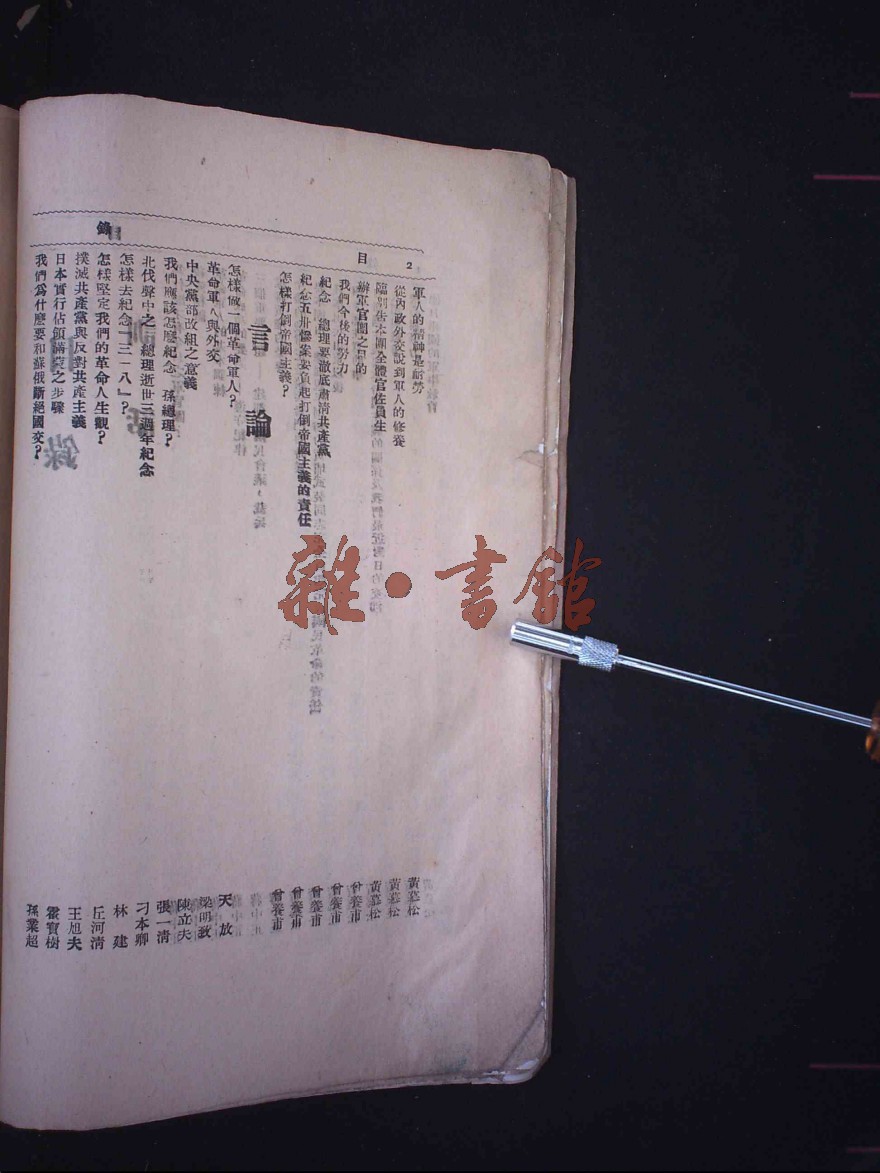 目
錄
2
軍人的精神是耐勞
黃慕松
從內政外交說到軍人的修養
黃慕松
臨別告本團全體官佐員生
黃慕松
辦軍官團之目的
曾養甫
我們今後的努力
曾養甫
紀念 總理要徹底肅清共產黨
曾養甫
紀念五卅慘案要負起打倒帝國主義的責任
曾養甫
怎樣打倒帝國主義?
曾養甫
言論
怎樣做一個革命軍人?
天放
革命軍人與外交
梁明致
中央黨部改組之意義
陳立夫
我們應該怎麼紀念 孫總理?
張一清
北伐聲中之 總理逝世三週年紀念
刁本卿
怎樣去紀念「三一八」?
林建
怎樣堅定我們的革命人生觀?
丘河清
撲滅共產黨與反對共產主義
王旭夫
日本實行佔領滿蒙之步驟
霍寶樹
我們爲什麼要和蘇俄斷絕國交?
孫業超
雜·書館